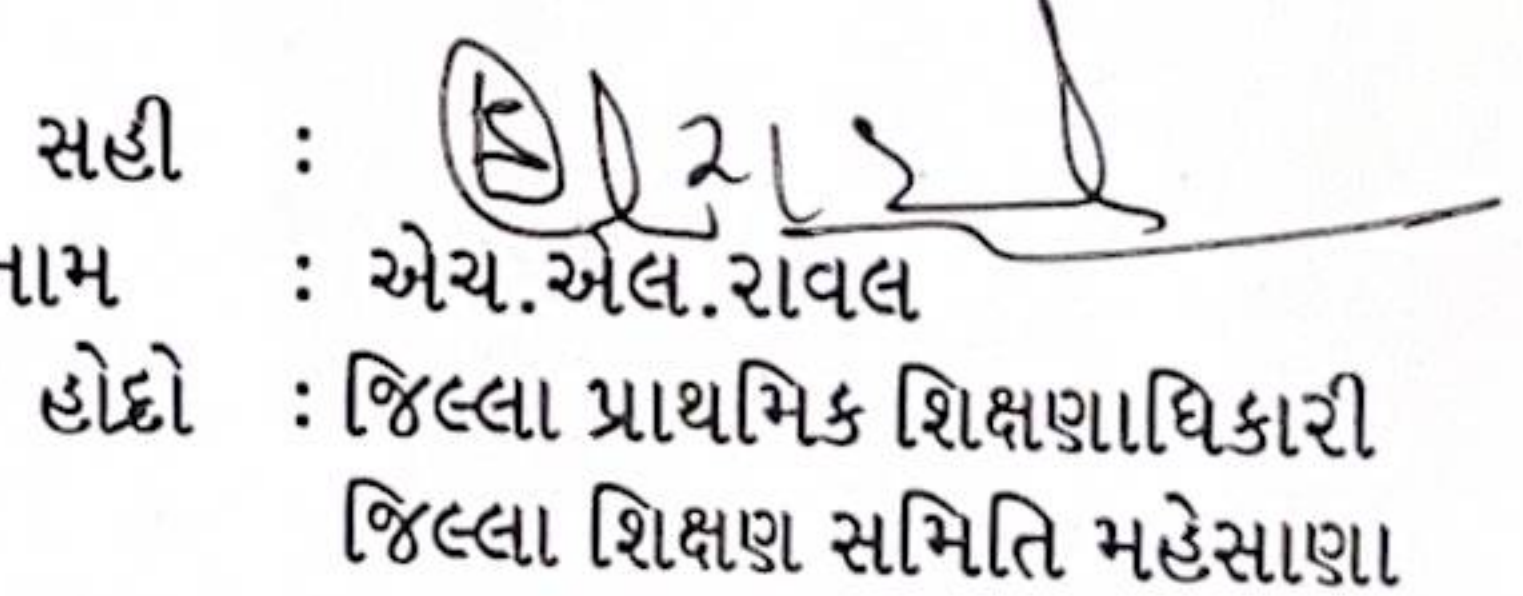 સહી :
નામ : એચ.એલ.રાવલ
હોદ્દો : જિલ્લા પ્રાથમિક શિક્ષણાધિકારી
જિલ્લા શિક્ષણ સમિતિ મહેસાણા